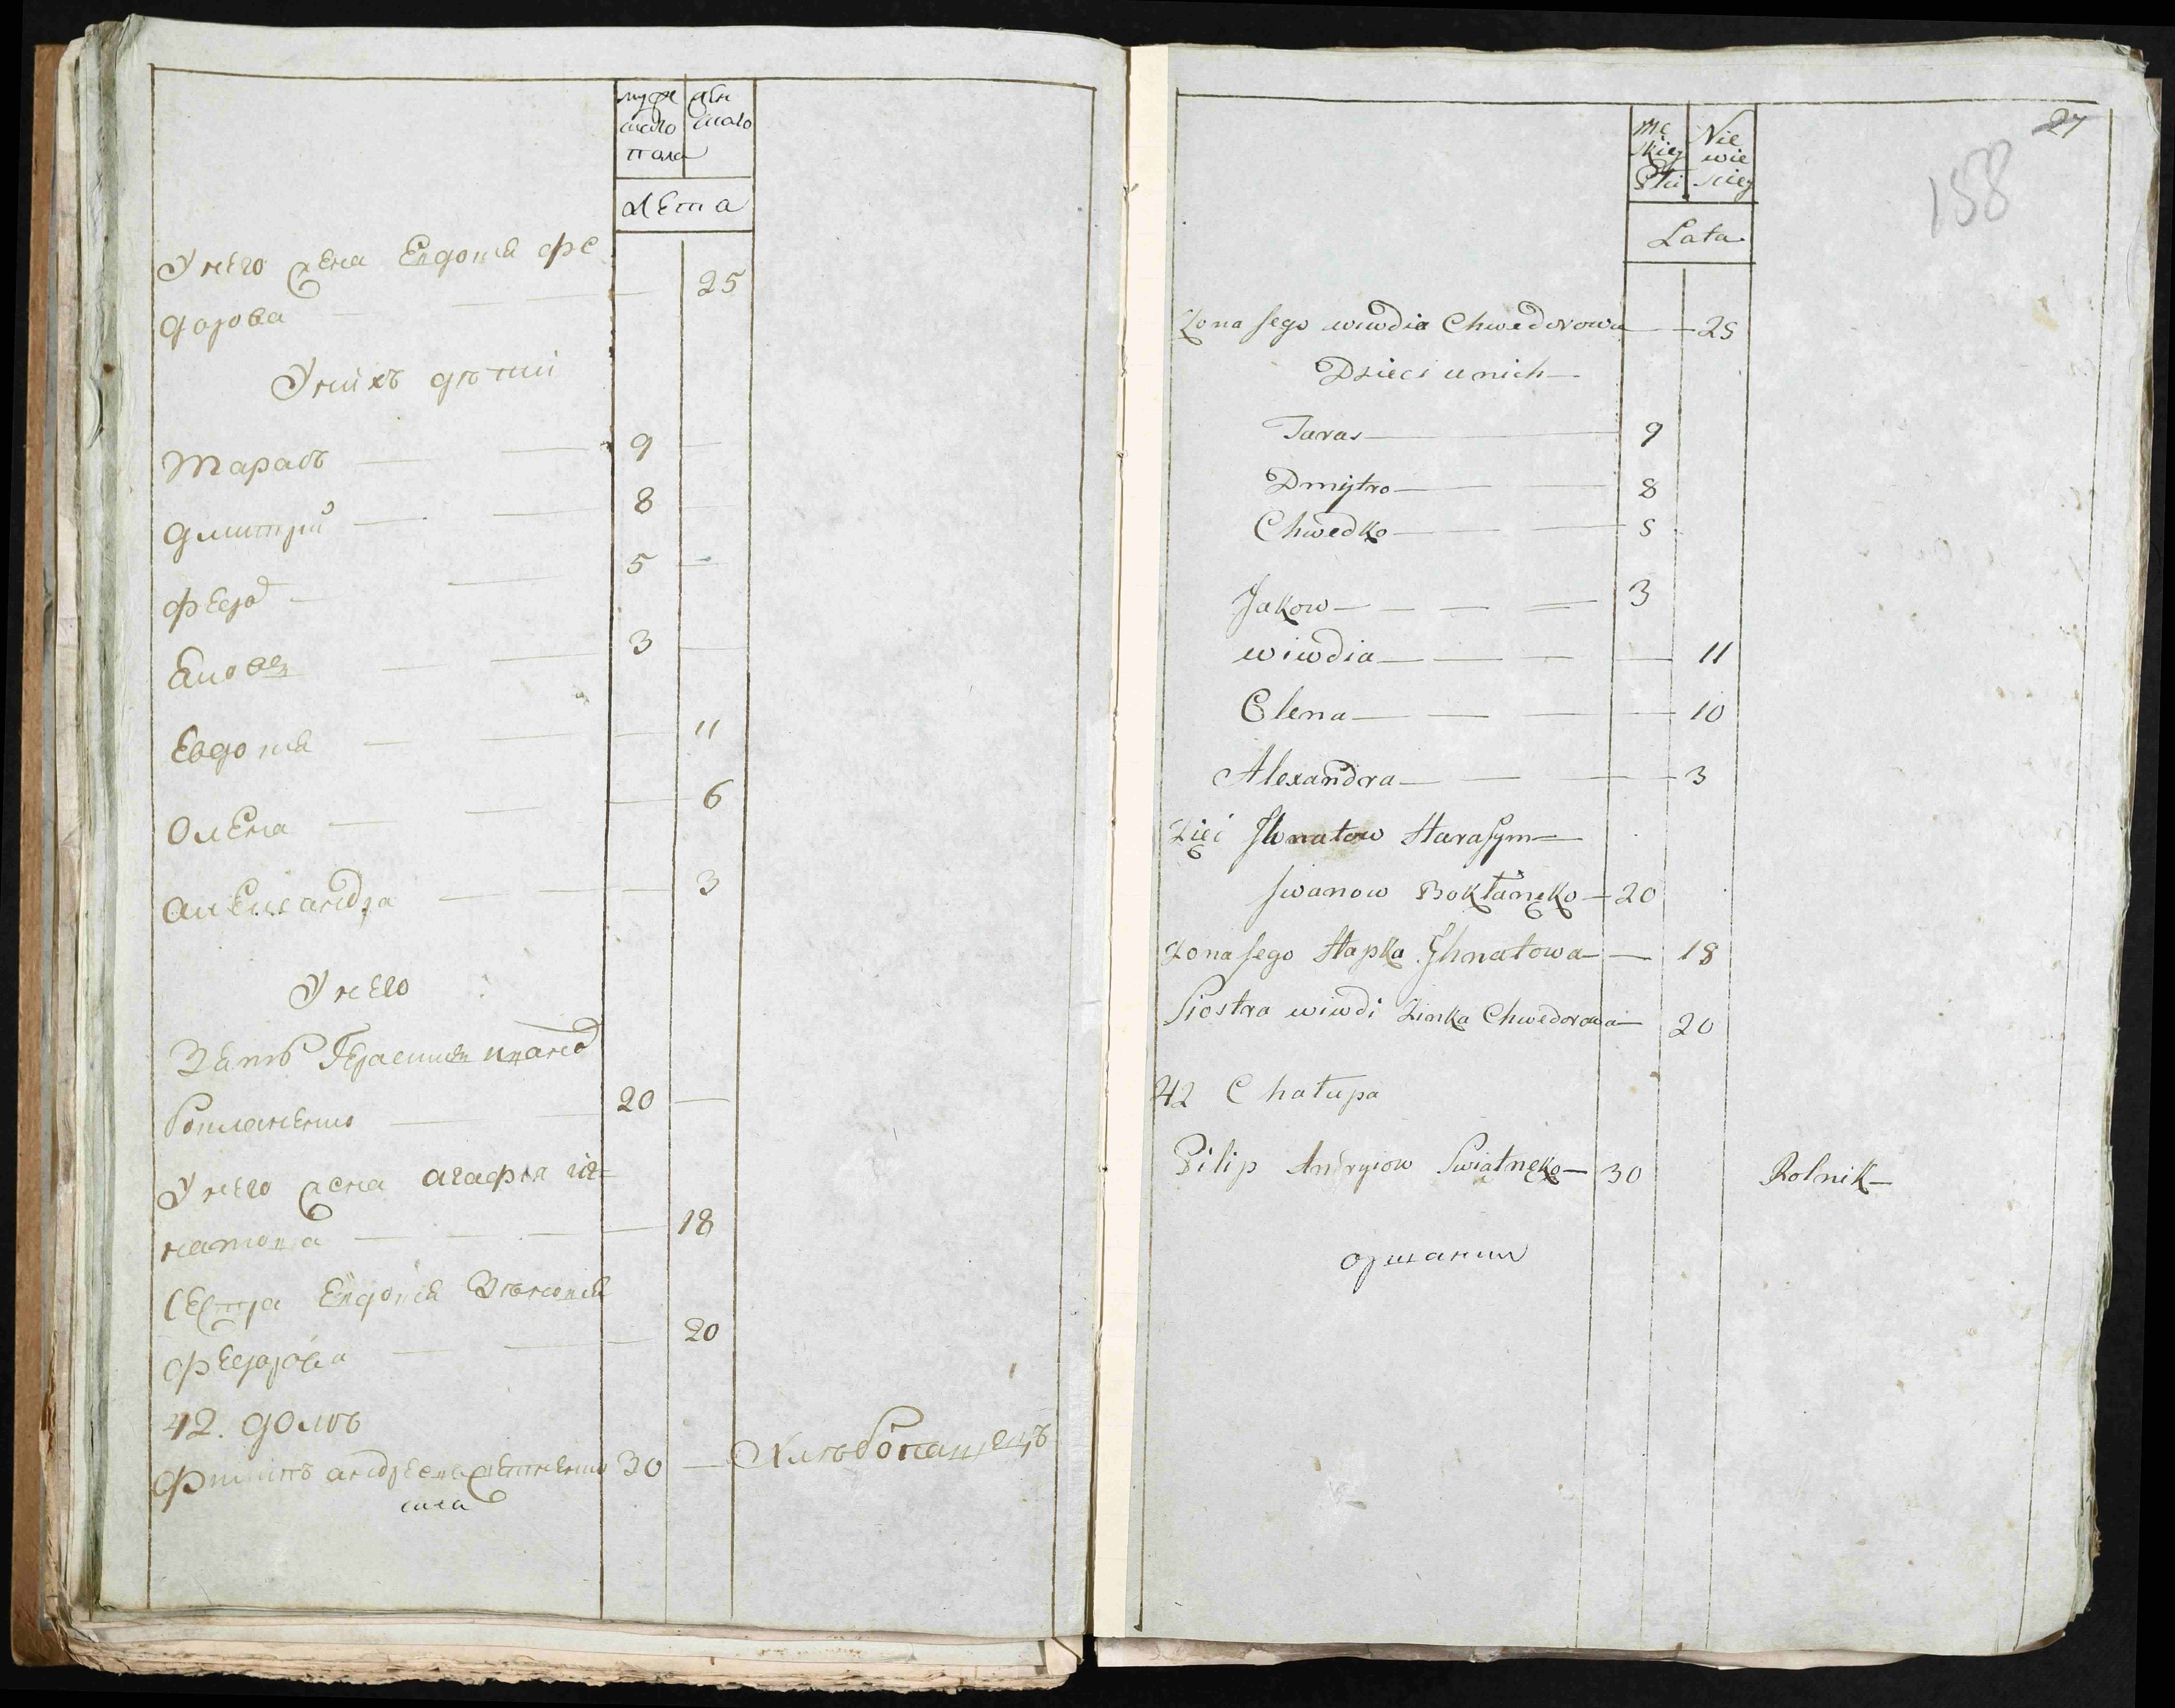 муже женс
ского каго
пола
лета
У него жена Евдокия Фе
дорова 25
У нихъ дѣтии
Тарасъ 9
Дмитрий 8
Федор 5
Яковъ 3
Евдокия 11
Олена 6
Александра 3
У него
Зять Герасим Иванов
20
У него жена Агафия Иг=
натова 18
Сестра Евдокии Зѣновия
Федорова 20
42. домъ
Филипъ Андреевъ 30 Хлѣбопашецъ
Mę Nie
skiey wie
Płci sciey
Lata
27
158
Żona Jego wiwdia Chwedorowa 25
Dzieci u nich
Taras 9
Dmytro 8
Chwedko 5
Jakow 3
wiwdia 11
Elena 10
Alexandra 3
Zięć Ihnatow Harasym
Iwanow Bokłanęko 20
Żona Jego Hapka Ihnatowa 18
Siostra wiwdi Zinka Chwedorowa 20
42 Chałupa
Pilip Andryiow Swiatnęko 30 Rolnik